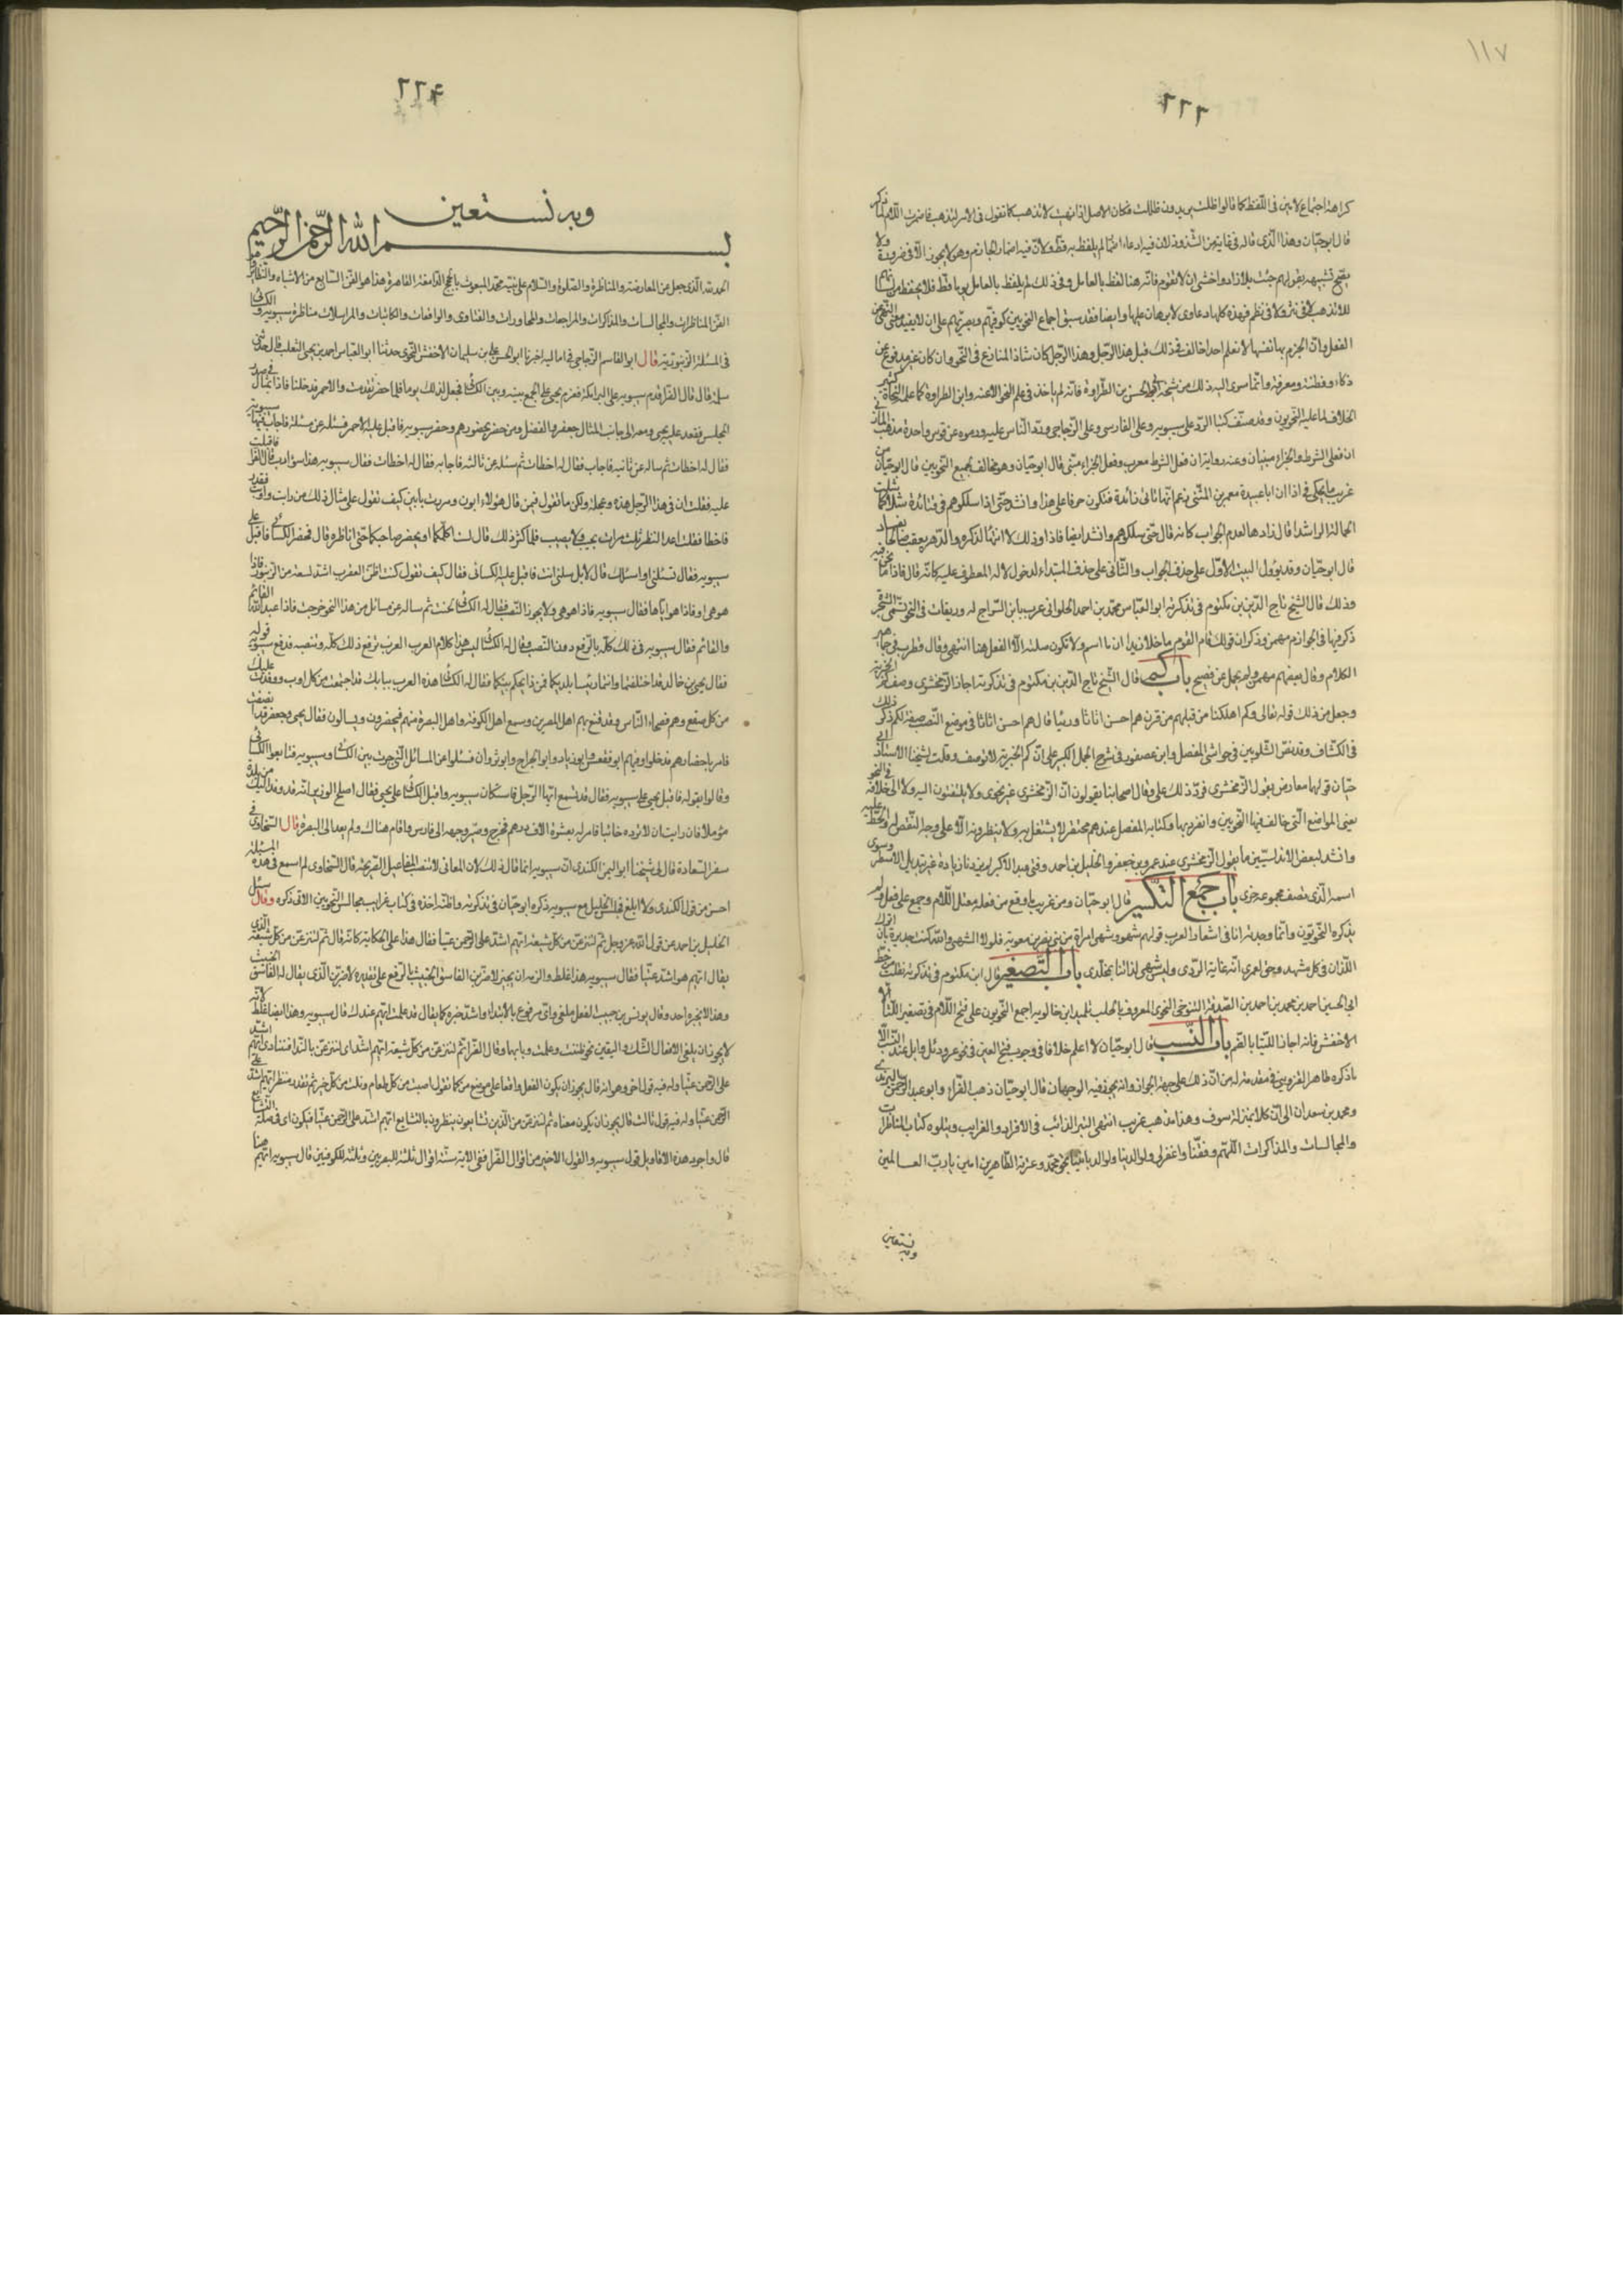 ١١٧
٢٢٦
كراهة اجتماع لامين فى اللفظ كما قالوا ظلت يريدون ظللت فكان الاصل اذا نهيت لا تذهب كما تقول فى الامر لتذهب فاضمرت اللام
قال ابو حيان وهذا الذى قاله فى غاية من الشذوذ لان فيه ادعاء اضمار لم يلفظ به قط ولان فيه اضمار الجازم وهو لا يجوز الا فى ضرورة ولا
يصح تشبيهه بقولهم جئت بلا زاد واخشى ان لا تقوم فانه هنا لفظ بالعامل وفى ذلك لم يلفظ بالعامل يوما قط فلا يحفظ من
للا تذهب لا فى نثر ولا فى نظم فهذه كلها دعاوى لا برهان عليها وايضا فقد سبق اجماع النحويين كوفيهم وبصريهم على ان لا يفيد معنى النهى عن
الفعل وان الجزم بها نفسها لا نعلم احدا خالف فى ذلك قبل هذا الرجل وهذا الرجل كان شاذ المنازع فى النحو وان كان غير مدفوع عن
ذكاء وفطنة ومعرفة وانما سرى اليه ذلك من شيخه ابى الحسين بن الطراوة فانه لم ياخذ فى علم النحو الا عنه وابن الطراوة كما علم النحاة كثير
الخلاف لما عليه النحويون وقد صنف كتبا الرد على سيبويه وعلى الفارسى وعلى الزجاجى وقد الناس عليه ورموه عن قوس واحدة مذهب المازنى
ان فعلى الشرط والجزاء مبنيان وعنه رواية ان فعل الشرط معرب وفعل الجزاء مبنى قال ابو حيان وهو مخالف لجميع النحويين قال ابو حيان من
غريب ما يحكى فى اذا ان ابا عبيدة معمر بن المثنى زعم انها تاتى زائدة فتكون حرفا على هذا وانشد حتى اذا سلكوهم فى قتائدة شلا كما
الجمالة الشردا قال زادها لعدم الجواب كانه قال حتى سلكوهم وانشد ايضا فاذا وذلك لا مهاه لذكره والدهر يعقب صالحا بفساد
قال ابو حيان وقد يؤول البيت الاول على حذف الجواب والثانى على حذف المبتداء لدخول لاله المعطوف عليه كانه قال فاذا ما نحن فيه
وذلك قال الشيخ تاج الدين بن مكتوم فى تذكرته ابو العباس محمد بن احمد الحلوانى عرف بابن السراج له وريقات فى النحو تسمى الشجر
ذكر فيها فى الجوازم مهمن وذكر ان قولك قام القوم ما خلا زيدا ان ما اسم ولا تكون صلته الا الفعل هنا انتهى وقال قطرب
الكلام وقال بعضهم مهمن ولم يحمل عن فصيح باب كم قال الشيخ تاج الدين بن مكتوم فى تذكرته اجاز الزمخشرى وصف كم الخبرية
وجعل من ذلك قوله تعالى وكم اهلكنا من قبلهم من قرن هم احسن اثاثا ورئيا قال هم احسن اثاثا فى موضع النصب صفة لكم ذكر ذلك
فى الكشاف وقد نص الشلوبين فى حواشى المفصل وابن عصفور فى شرح الجمل الكبير على ان كم الخبرية لا توصف وقلت لشيخنا الاستاذ ابى
حيان قولهما معارض بقول الزمخشرى فرد ذلك على وقال اصحابنا يقولون ان الزمخشرى غير نحوى ولا يلتفتون اليه ولا الى خلافه فى النحو
يعنى المواضع التى خالف فيها النحويين وانفرد بها وكتابه المفصل عندهم محتقر لا يشتغل به ولا ينظرونه الا على وجه النقص له والحط عليه
وانشد لبعض الاندلسيين ما يقول الزمخشرى عند عمرو بن جعفر والخليل بن احمد وفتى عبد الاكبر لم يزدنا زيادة غير تبديل الاسطر وسوى
اسمه الذى نصف مجموعه خرى باب جمع التكسير قال ابو حيان ومن غريب ما وقع من فعلة معتل اللام وجمع على فعل ولم
يذكره النحويون وانما وجدته انا فى اشعار العرب قولهم شهوة وشهى امراة من بنى نصر بن معوية فلولا الشهى والله كنت جديرة بان اترك
اللذات فى كل مشهد وحق لعمرى انه غاية الردى وليس شهى لذاتنا بمخلدى باب التصغير قال ابن مكتوم فى تذكرته نقلت من خط
ابى الحسين احمد بن محمد بن احمد بن الصدفة التنوخى النحوى المعروف بالمهلب تلميذ ابن خالويه اجمع النحويون على فتح اللام فى تصغير اللتيا الا
الاخفش فانه اجاز اللتيا بالضم باب النسب قال ابو حيان لا اعلم خلافا فى وجوب فتح العين فى نحو عمر ودئل وابل عند النسب الا
ما ذكره طاهر القزوينى فى مقدمة له من ان ذلك على جهة الجواز وانه يجوز فيه الوجهان قال ابو حيان ذهب الفراء وابو عبد الرحمن
ومحمد بن سعدان الى ان كلا بمنزلة سوف وهذا مذهب غريب انتهى التبر الذائب فى الافراد والغرايب ويتلوه كتاب المناظرات
والمجالسات والمذاكرات اللهم وفقنا واغفر لى ولوالدينا ولوالد بحق محمد وعترته الطاهرين امين يا رب العـالمين
وبه نستعين
٢٢٤
وبه نستعين
بسم الله الرحمن الرحيم
الحمد لله الذى جعل عن المعارضة والمناظرة والصلوة والسلام على نبيه محمد المبعوث بالحجج الدامغة القاهرة هذا هو الفن السابع من الاشباه والنظائر
الفن المناظرات والمجالسات والمذاكرات والمراجعات والمحاورات والفتاوى والواقعات والمكاتبات والمراسلات مناظرة سيبويه والكسائى
فى المسئلة الزنبورية قال ابو القاسم الزجاجى فى اماليه اخبرنا ابو الحسن على بن سليمان الاخفش النحوى حدثنا ابو العباس احمد بن يحيى الثعلب قال حدثنى
سلمة قال قال الفراء قدم سيبويه على البرامكة فعزم يحيى على الجمع بينه وبين الكسائى فجعل لذلك يوما فلما حضر تقدمت والاحمر فدخلنا فاذا تمثال فى صدر
المجلس فقعد عليه يحيى ومعه الى جانب المثال جعفر والفضل ومن حضر بحضورهم وحضر سيبويه فاقبل عليه الاحمر فسئله عن مسئلة فاجاب فيها سيبويه
فقال له اخطات ثم ساله عن ثانية فاجاب فقال له اخطات ثم سئله عن ثالثة فاجابه فقال له اخطات فقال سيبويه هذا سوء ادب قال الفراء فاقبلت
عليه فقلت ان فى هذا الرجل حدة وعجلة ولكن ما تقول فيمن قال هؤلاء ابون ومررت بابين كيف تقول على مثال ذلك من وايت واويت فقدر
فاخطا فقلت اعد النظر ثلث مرات يجيب ولا يصيب فلما كثر ذلك قال لست اكلمكما او يحضر صاحبكما حتى اناظره قال فحضر الكسائى فاقبل على
سيبويه فقال تسئلنى او اسئلك قال لا بل سلنى انت فاقبل عليه الكسائى فقال كيف تقول كنت اظن العقرب اشد لسعة من الزنبور فاذا
هو هى او فاذا هو اياها فقال سيبويه فاذا هو هى ولا يجوز النصب فقال له الكسائى لحنت ثم ساله عن مسائل من هذا النحو خرجت فاذا عبد الله القائم
والقائم فقال سيبويه فى ذلك كله بالرفع دون النصب فقال له الكسائى ليس هذا كلام العرب العرب ترفع ذلك كله وتنصبه فدفع سيبويه قوله
فقال يحيى بن خالد قد اختلفتما وانتما رئيسا بلديكما فمن ذا يحكم بينكما فقال له الكسائى هذه العرب ببابك قد اجتمعت من كل اوب ووفدت عليك
من كل صقع وهم فصحاء الناس وقد قنع بهم اهل المصرين وسمع اهل الكوفة واهل البصرة منهم فيحضرون ويسالون فقال يحيى وجعفر قد انصفت
فامر باحضارهم فدخلوا وفيهم ابو فقعس وابو زياد وابو الجراح وابو ثروان فسئلوا عن المسائل التى جرت بين الكسائى وسيبويه فتابعوا الكسائى
وقالوا بقوله فاقبل يحيى على سيبويه فقال قد تسمع ايها الرجل فاستكان سيبويه واقبل الكسائى على يحيى فقال اصلح الوزير انه قد وفد اليك من بلده
مؤملا فان رايت ان لا ترده خائبا فامر له بعشرة الاف درهم فخرج وصير وجهه الى فارس واقام هناك ولم يعد الى البصرة قال السخاوى فى
سفر السعادة قال لى شيخنا ابو اليمن الكندى ان سيبويه انما قال ذلك لان المعانى لا تنصب المفاعيل الصريحة قال السخاوى لم اسمع فى هذه المسئلة
احسن من قول الكندى ولا ابلغ قيل الخليل مع سيبويه ذكره ابو حيان فى تذكرته واظنه اخذه فى كتاب غرايب مجالس النحويين الاتى ذكره وقال سئل
الخليل بن احمد عن قول الله عز وجل ثم لننزعن من كل شيعة ايهم اشد على الرحمن عتيا فقال هذا على الحكاية كانه قال ثم لننزعن من كل شيعة الذى
يقال ايهم هو اشد عتيا فقال سيبويه هذا غلط والزمه ان يجيز لاضربن الفاسق الخبيث بالرفع على تقديره لاضربن الذى يقال له الفاسق الخبيث
وهذا لا يجيزه احد وقال يونس بن حبيب الفعل ملغى واى مرفوع بالابتداء واشد خبره كما يقال قد علمت ايهم عندك قال سيبويه وهذا ايضا غلط لانه
لا يجوز ان يلغى الا افعال الشك واليقين نحو ظننت وعلمت وبابهما وقال الفراء ثم لننزعن من كل شيعة ايهم اشد اى لننزعن بالنداء فننادى ايهم اشد
على الرحمن عتيا وله فيه قول اخر وهو انه قال يجوز ان يكون الفعل واقعا على موضع من كما تقول اصبت من كل طعام ونلت من كل خير ثم تقدر ننظر ايهم اشد على
الرحمن عتيا وله فيه قول ثالث قال يجوز ان يكون معناه ثم لننزعن من الذين تشايعوا ينظرون بالتشايع ايهم اشد على الرحمن عتيا فيكون اى فى صلة التشايع
قال واجود هذه الاقاويل قول سيبويه والقول الاخير من اقوال الفراء ففى الاية ستة اقوال ثلثة للبصريين وثلثة للكوفيين قال سيبويه ايهم هنا